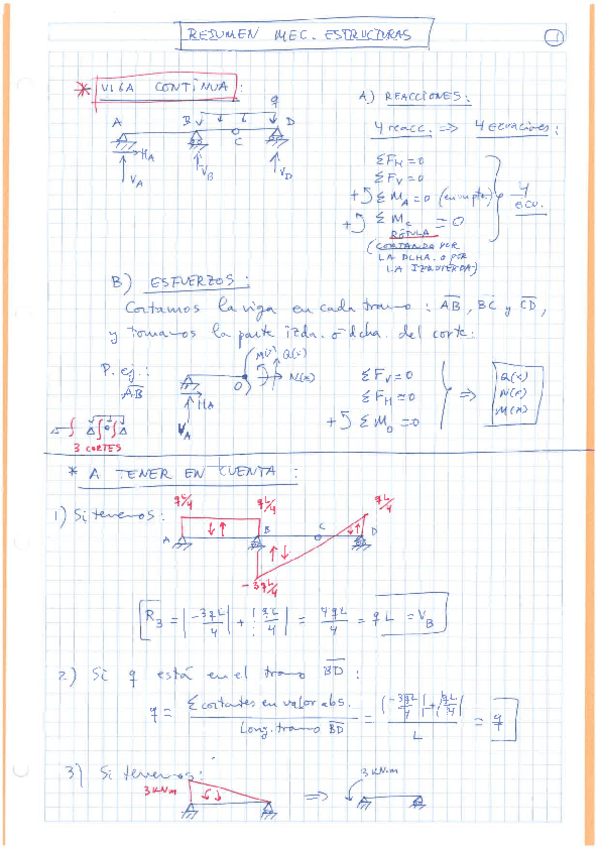 RESUMEN MEC. ESTRUCTURAS
1
* VIGA CONTINUA:
q
A B C D
HA
VA VB VD
A) REACCIONES:
4 reacc. => 4 ecuaciones:
ΣFH = 0
ΣFV = 0
+ ΣMA = 0
+ ΣMC = 0
RÓTULA
4 ecu.
(CORTANDO POR
LA DCHA. O POR
LA IZQUIERDA)
B) ESFUERZOS:
Cortamos la viga en cada tramo: AB, BC y CD,
y tomamos la parte izda. o dcha. del corte:
P. ej.:
AB
M(x) Q(x)
N(x)
O
HA
VA
ΣFV = 0
ΣFH = 0
+ ΣMo = 0
=>
Q(x)
N(x)
M(x)
3 CORTES
* A TENER EN CUENTA:
1) Si tenemos:
qL/4 qL/4 qL/4
A B C D
-3qL/4
RB = |-3qL/4| + |qL/4| = 4qL/4 = qL = VB
2.) Si q está en el tramo BD:
q = Σ cortantes en valor abs. / Long. tramo BD = (|-3qL/4| + |qL/4|) / L = q
3) Si tenemos:
3 kN·m => 3 kN·m